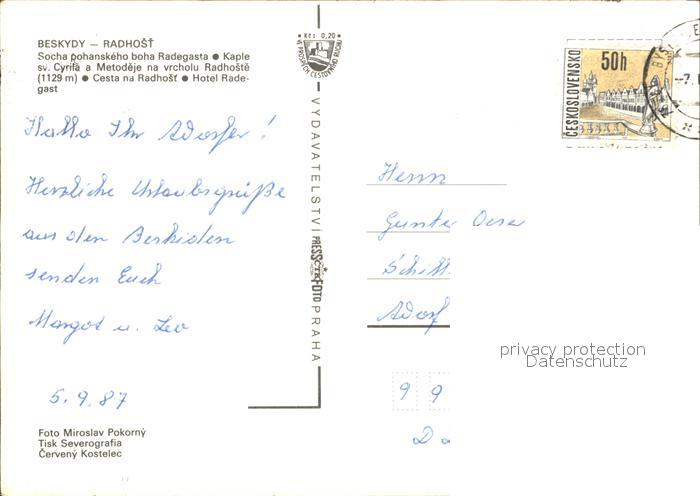 BESKYDY — RADHOŠŤ
Socha pohanského boha Radegasta ● Kaple
sv. Cyrila a Metoděje na vrcholu Radhoště
(1129 m) ● Cesta na Radhošť ● Hotel Rade-
gast
Hallo Ihr Adorfer!
Herzliche Urlaubsgrüße
aus den Beskiden
senden Euch
Margot u. Leo
5.9.87
Foto Miroslav Pokorný
Tisk Severografia
Červený Kostelec
Kčs 0,20
VE PROSPĚCH CESTOVNÍHO RUCHU
VYDAVATELSTVÍ PRESSFOTO PRAHA
ČTK
ČESKOSLOVENSKO
50h
Herrn
Gunter
Schill
Adorf
9 9
privacy protection
Datenschutz